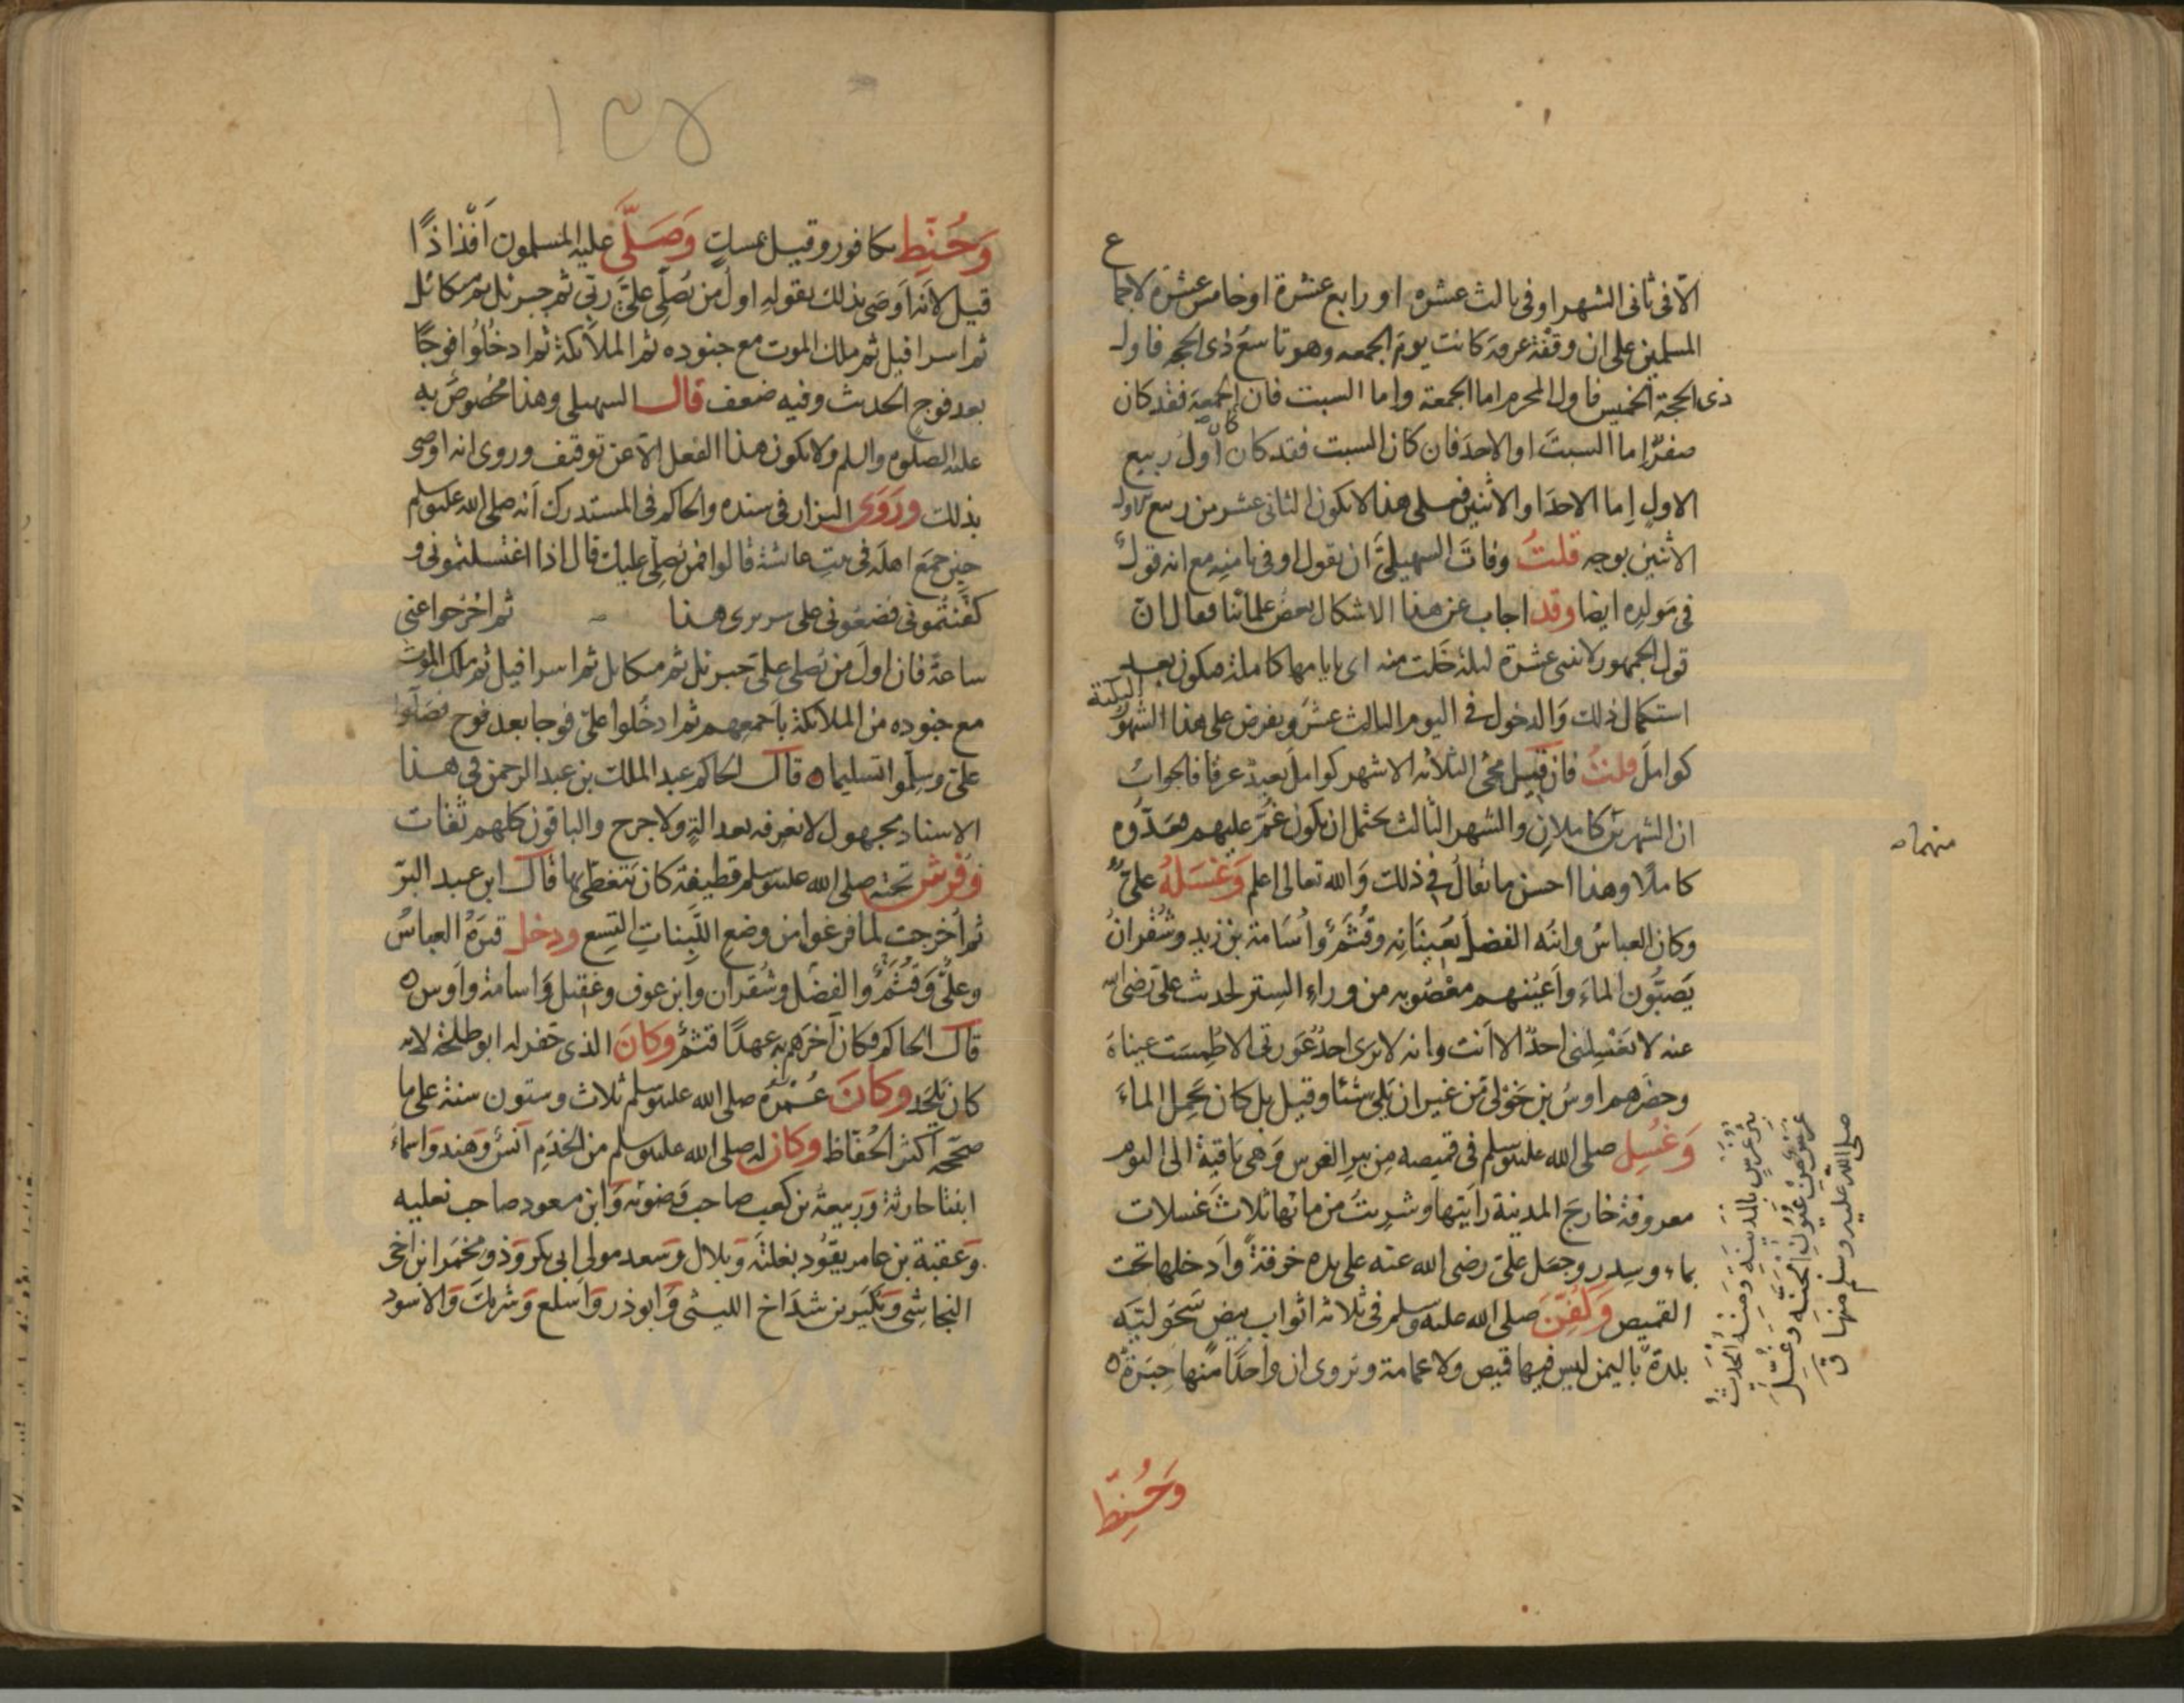 الا فى ثانى الشهر او فى ثالث عشره او رابع عشرة او خامس عشرة لاجماع
المسلمين على ان وقفة عرفة كانت يوم الجمعه وهو تاسع ذى الحجه فاول
ذى الحجة الخميس فاول المحرم اما الجمعة واما السبت فان كان الجمعة فقد كان
صفرٌ إما السبتَ او الاحدَ فان كان السبت فقد كان اول ربيع
الاول إما الاحدَ او الاثنين فعلى هذا لا يكون الثانى عشر من ربيع الاول
الاثنين بوجه قلتُ وفات السهيليَّ ان يقول او فى ثامنه مع انه قولٌ
فى مَولده ايضا وقد اجاب عن هذا الاشكال بعض علمائنا فقال ان
قول الجمهور لاثنى عشرة ليلة خَلت منه اى بايامها كاملة فيكون بعد
استكمال ذلك وَالدخول فى اليوم الثالث عشَر ويفرض على هذا الشهورُ الثلثة
كواملَ قلتُ فان قيل مجئ الثلاثه الاشهر كواملَ بعيدٌ عرفا فالجوابُ
ان الشهرين كاملان والشهر الثالث يحتمل ان يكون غُمَّ عليهم فعَدُّوه
كاملًا وهذا احسن ما يقال فى ذلك وَالله تعالى اعلم وَغَسَلَهُ علىٌّ
وكان العباسُ وابنُه الفضل يُعِينَانِه وقُثَمٌ وأُسَامة بن زيد وشُقْرانُ
يَصبُّون الماءَ وأعيُنهم معْصُوبه من وراءِ السِتر لحديث علىّ رضى الله
عنه لا يَغْسِلنى احدٌ الا انت وانه لا يرى احدٌ عَورتى الا طُمِسَت عيناهُ
وحضَرهم اوسُ بن خَوْلى من غير ان يَلى شئا وقيل بل كان يحمل الماءَ
وَغُسِل صلى الله عليه وسلم فى قميصه مِن بير الغرس وَهى باقيةٌ الى اليوم
معروفة خارجَ المدينة رأيتها وشربتُ من مائها ثلاثَ غسلات
بماء وسِدر وجعَل علىٌ رضى الله عنه على يده خرقةً وأدخلها تحت
القميص وَكُفِّنَ صلى الله عليه وسلم فى ثلاثه اثواب بيض سَحَوليّه
بلدة باليمن ليس فيها قميص ولا عمامة ويروى ان واحدًا منها حِبَرَةٌ
منهما
بئر غرسٍ بالمدينة ومنه الحديثُ
غرسٌ عين من عيون الجنة وغُسِّلَ
صلى الله عليه وسلم منها ق
وَحُنِّط
١٣٧
وَحُنِّط بكافور وقيل بمسك وَصَلَّى عليه المسلمون أَفْذاذًا
قيل لانه أوصَى بذلك بقوله اول من يُصلِّى علىَّ ربى ثم جبرئل ثم ميكائل
ثم اسرافيل ثم ملك الموت مع جنوده ثم الملائكة ثم ادخلُوا فوجًا
بعد فوج الحديث وفيه ضعف قال السهيلى وهذا مخصُوصٌ به
عليه الصلوه والسلم ولا يكون هذا الفعل الا عن توقيف وروى انه اوصى
بذلك ورَوَى البزار فى سنده والحاكم فى المستدرك أنه صلى الله عليه وسلم
حين جمع اهلَه فى بيت عائشة قالوا فمن يُصلى عليك قال اذا اغتسلتمونى و
كفّنتُمونى فضعُونى على سريرى هذا ثم اخرُجوا عنى
ساعةً فان اولَ من يُصلى علىّ جبرئل ثم ميكائل ثم اسرافيل ثم ملَك الموت
مع جنوده من الملائكة باجمعهم ثم ادخُلوا علىّ فوجا بعد فوج فصَلّوا
علىّ وسلّموا تسليما ه قال الحاكم عبد الملك بن عبد الرحمن فى هذا
الاسناد مجهول لا نعرفه بعدالةٍ ولا جرح والباقون كلهم ثقات
وَفُرِش تحته صلى الله عليه وسلم قطيفة كان يَتَغطّى بها قال ابن عبد البرّ
ثم أُخرجت لما فرغوا من وضع اللَّبِنات التِسع ودخل قبرَهُ العباسُ
وعلىٌّ وَقُثَمٌ والفضل وشُقران وابن عوف وعَقيل وَاسامة وأوس ه
قال الحاكم فكان آخرَهم به عهدًا قثمٌ وكَانَ الذى حَفر له ابو طلحة لانه
كان يَلحَد وكانَ عُمْرُه صلى الله عليه وسلم ثلاث وستون سنة على ما
صحّحه أكثر الحُفّاظ وكان له صلى الله عليه وسلم من الخدَم أنسٌ وَهند وَاسماءُ
ابنتا حارثة وَربيعة بن كعب صاحب وَضوئه وَابن مسعود صاحب نعليه
وَعقبة بن عامر يقوُد بغلته وَبلال وَسعد مولى ابى بكر وَذو مخمَر ابن اخى
النجاشِى وَبُكَير بن شدَاخ الليثى وَابو ذر وَأسلع وَشريك وَالاسود